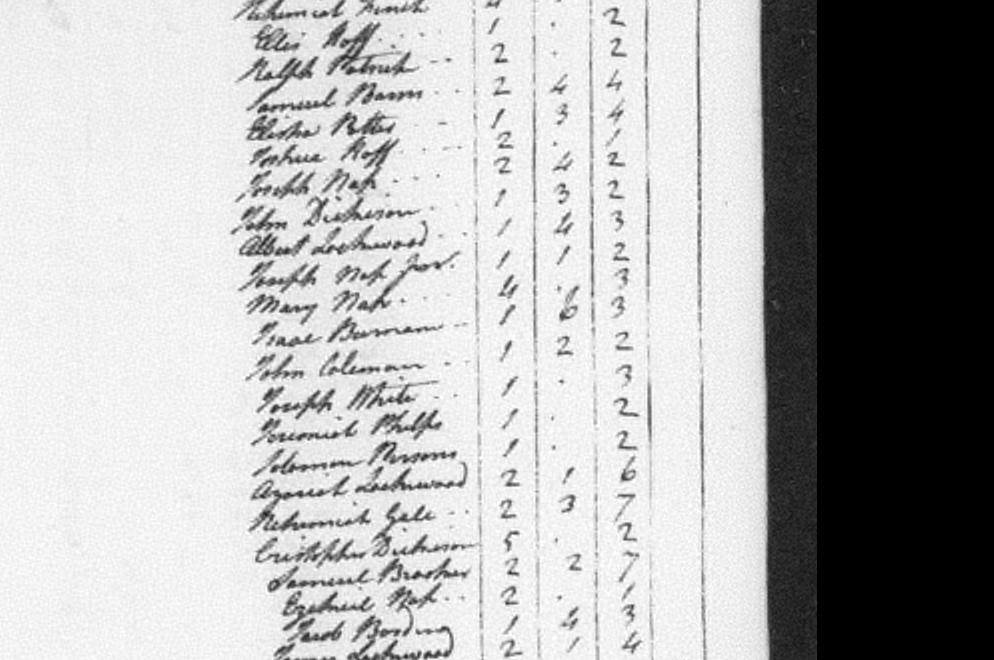 Nehemiah Finch 4 . 2
Ellis Roff 1 . 2
Ralph Patrick 2 . 2
Samuel Barns 2 4 4
Elisha Pettes 1 3 4
Joshua Roff 2 . 1
Joseph Nap 2 4 2
John Dickerson 1 3 2
Albert Lockwood 1 4 3
Joseph Nap Jnr. 1 1 2
Mary Nap 4 . 3
Isaac 1 6 3
John Coleman 1 2 2
Joseph White 1 . 3
Jeremiah Phelps 1 . 2
Solomon Persons 1 . 2
Azariet Lockwood 2 1 6
Nehemiah Gale 2 3 7
Cristopher Dickerson 5 . 2
Samuel Brooker 2 2 7
Ezekeil Nap 2 . 1
Jacob 1 4 3
Lockwood 2 1 4